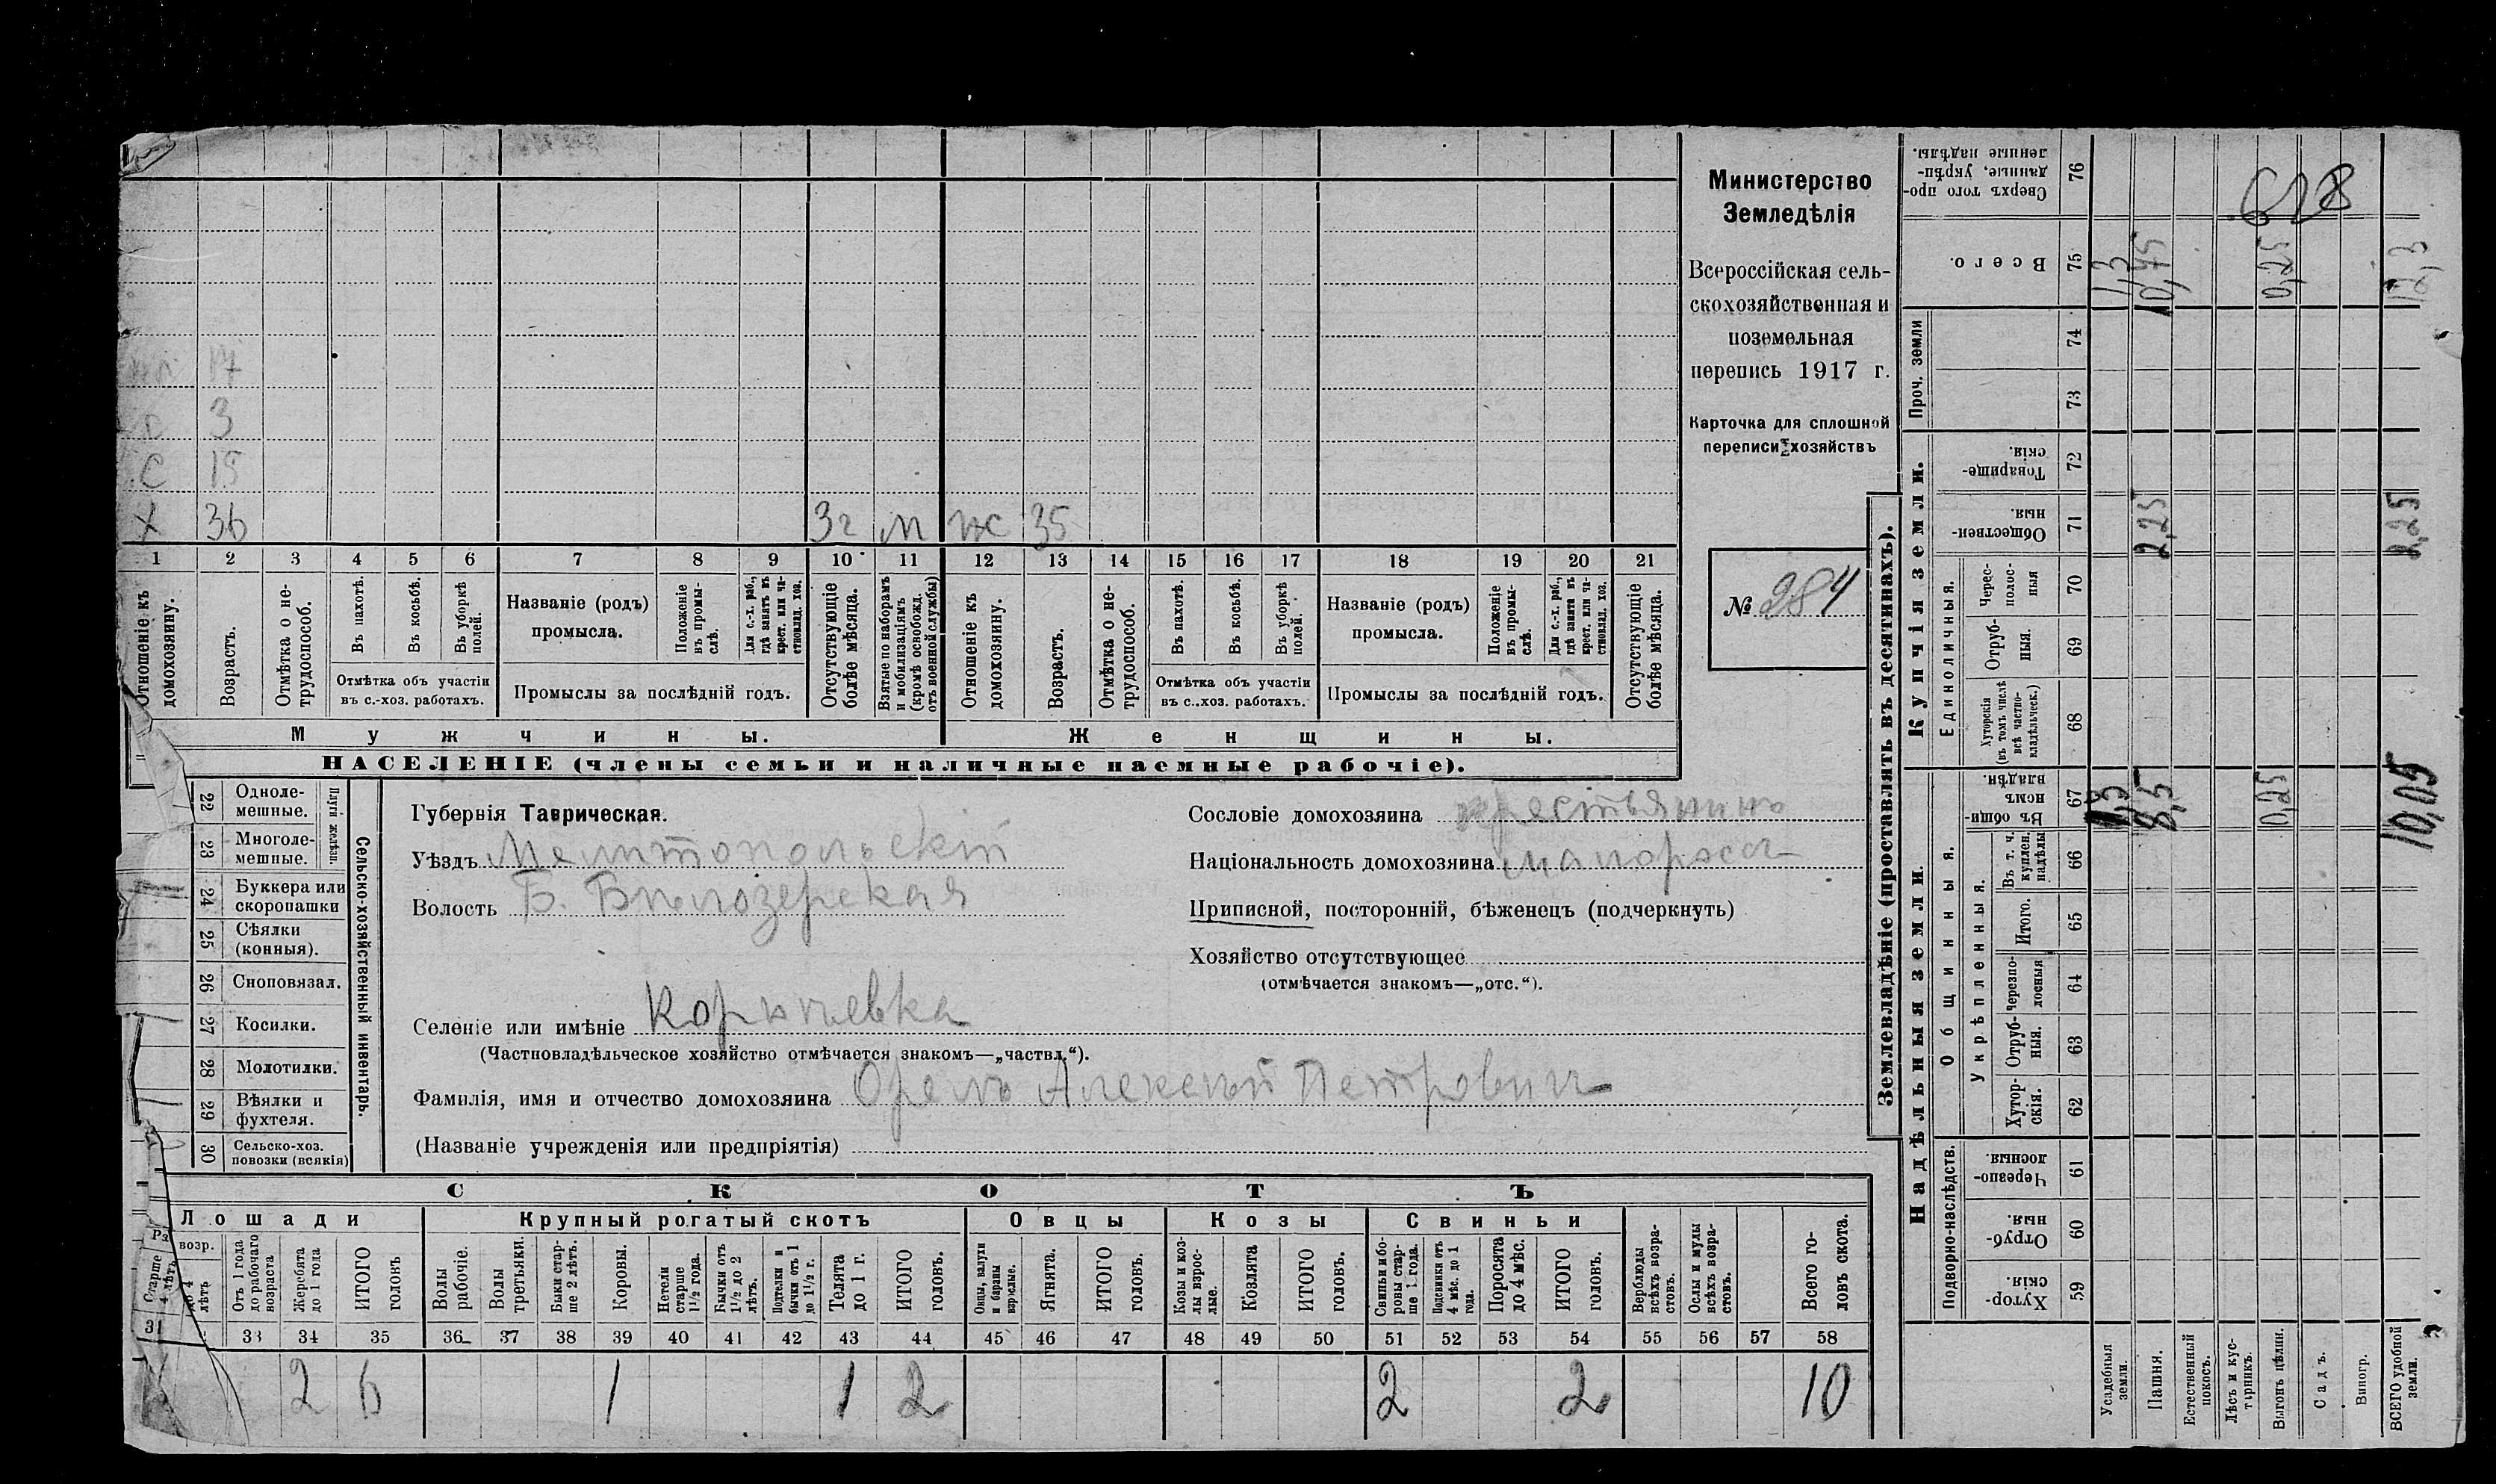 Министерство
Земледѣлія
Всероссійская сель-
скохозяйственная и
поземельная
перепись 1917 г.
Карточка для сплошной
переписи хозяйствъ
№ 284
17
3
С 15
Х 36 3г м жс 35
1 2 3 4 5 6 7 8 9 10 11 12 13 14 15 16 17 18 19 20 21
Отношеніе къ домохозяину.
Возрастъ.
Отмѣтка о не-
трудоспособ.
Въ пахотѣ.
Въ косьбѣ.
Въ уборкѣ
полей.
Отмѣтка объ участіи
въ с.-хоз. работахъ.
Названіе (родъ)
промысла.
Положеніе
въ промы-
слѣ.
Для с.-х. раб.,
гдѣ занятъ въ
крест. или ча-
стновлад. хоз.
Промыслы за послѣдній годъ.
Отсутствующіе
болѣе мѣсяца.
Взятые по наборамъ
и мобилизаціямъ
(кромѣ освобожд.
отъ военной службы)
Отношеніе къ
домохозяину.
Возрастъ.
Отмѣтка о не-
трудоспособ.
Въ пахотѣ.
Въ косьбѣ.
Въ уборкѣ
полей.
Отмѣтка объ участіи
въ с..хоз. работахъ.
Названіе (родъ)
промысла.
Положеніе
въ промы-
слѣ.
Для с.-х. раб.,
гдѣ занята въ
крест. или ча-
стновлад. хоз.
Промыслы за послѣдній годъ.
Отсутствующіе
болѣе мѣсяца.
Мужчины.
Женщины.
НАСЕЛЕНІЕ (члены семьи и наличные наемные рабочіе).
22 Одноле-
мешные.
23 Многоле-
мешные.
Плуги желѣзн.
24 Буккера или
скоропашки
25 Сѣялки
(конныя).
26 Сноповязал.
27 Косилки.
28 Молотилки.
29 Вѣялки и
фухтеля.
30 Сельско-хоз.
повозки (всякія)
Сельско-хозяйственный инвентарь.
Губернія Таврическая.
Уѣздъ Мелитопольскій
Волость Б. Бѣлозерская
Сословіе домохозяина крестьянинъ
Національность домохозяина малороссъ
Приписной, посторонній, бѣженецъ (подчеркнуть)
Хозяйство отсутствующее
(отмѣчается знакомъ—„отс.“).
Селеніе или имѣніе Корнѣевка
(Частновладѣльческое хозяйство отмѣчается знакомъ—„частвл.“).
Фамилія, имя и отчество домохозяина Орелъ Алексѣй Петровичъ
(Названіе учрежденія или предпріятія)
СКОТЪ
Лошади
Крупный рогатый скотъ
Овцы
Козы
Свиньи
возр.
Старше
4 лѣтъ
до 4
лѣтъ
Отъ 1 года
до рабочаго
возраста
Жеребята
до 1 года
ИТОГО
головъ
Волы
рабочіе.
Волы
третьяки.
Быки стар-
ше 2 лѣтъ.
Коровы.
Нетели
старше
1½ года.
Бычки отъ
1½ до 2
лѣтъ.
Подтелки и
бычки отъ 1
до 1½ г.
Телята
до 1 г.
ИТОГО
головъ.
Овцы, валухи
и бараны
взрослые.
Ягнята.
ИТОГО
головъ.
Козы и коз-
лы взрос-
лые.
Козлята
ИТОГО
головъ.
Свиньи и бо-
ровы стар-
ше 1 года.
Подсвинки отъ
4 мѣс. до 1
года.
Поросята
до 4 мѣс.
ИТОГО
головъ.
Верблюды
всѣхъ возра-
стовъ.
Ослы и мулы
всѣхъ возра-
стовъ.
Всего го-
ловъ скота.
31 33 34 35 36 37 38 39 40 41 42 43 44 45 46 47 48 49 50 51 52 53 54 55 56 57 58
2 6 1 1 2 2 2 10
Землевладѣніе (проставлять въ десятинахъ).
Надѣльныя земли.
Купчія земли.
Проч. земли
Подворно-наслѣдств.
Общинныя.
Укрѣпленныя.
Единоличныя.
Хутор-
скія. 59
Отруб-
ныя. 60
Черезпо-
лосныя. 61
Хутор-
скія. 62
Отруб-
ныя. 63
Черезпо-
лосныя 64
Итого. 65
Въ т. ч.
куплен.
надѣлы 66
Въ общин-
номъ
владѣн. 67
Хуторскія
(въ томъ числѣ
всѣ частно-
владѣльческ.) 68
Отруб-
ныя. 69
Черес-
полос-
ныя 70
Обществен-
ныя. 71
Товарище-
скія. 72
73
74
Всего. 75
Сверхъ того про-
данные, укрѣп-
ленные надѣлы. 76
Усадебныя
земли. 1,3
Пашня. 8,5 2,25 10,75
Естественный
покосъ.
Лѣсъ и кус-
тарникъ.
Выгонъ цѣлин. 0,25 0,25
Садъ.
Виногр.
ВСЕГО удобной
земли. 10,05 2,25 12,3
628